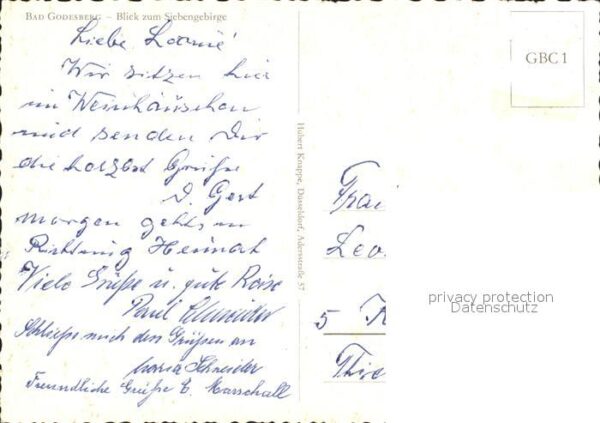 BAD GODESBERG – Blick zum Siebengebirge
Liebe
Wir sitzen hier
im Weinhäuschen
und senden Dir
die herzlst Grüße
D. Gert
morgen gehts in
Richtung Heimat
Viele Grüße u. gute Reise
Paul Schneider
Schließe mich den Grüßen an
Maria Schneider
Freundliche Grüße E. Marschall
Hubert Knappe, Düsseldorf, Adersstraße 57
GBC 1
Frau
Leo
5
privacy protection
Datenschutz